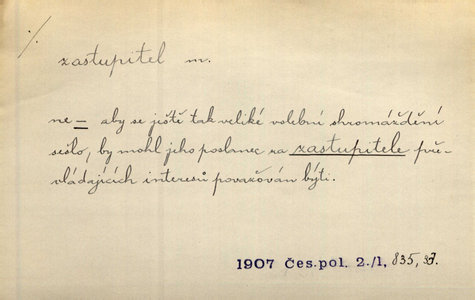 ·/.
zastupitel m.
ne – aby se ještě tak veliké volební shromáždění
sešlo, by mohl jeho poslanec za zastupitele pře-
vládajících interesů považován býti.
1907 Čes. pol. 2./1, 835,